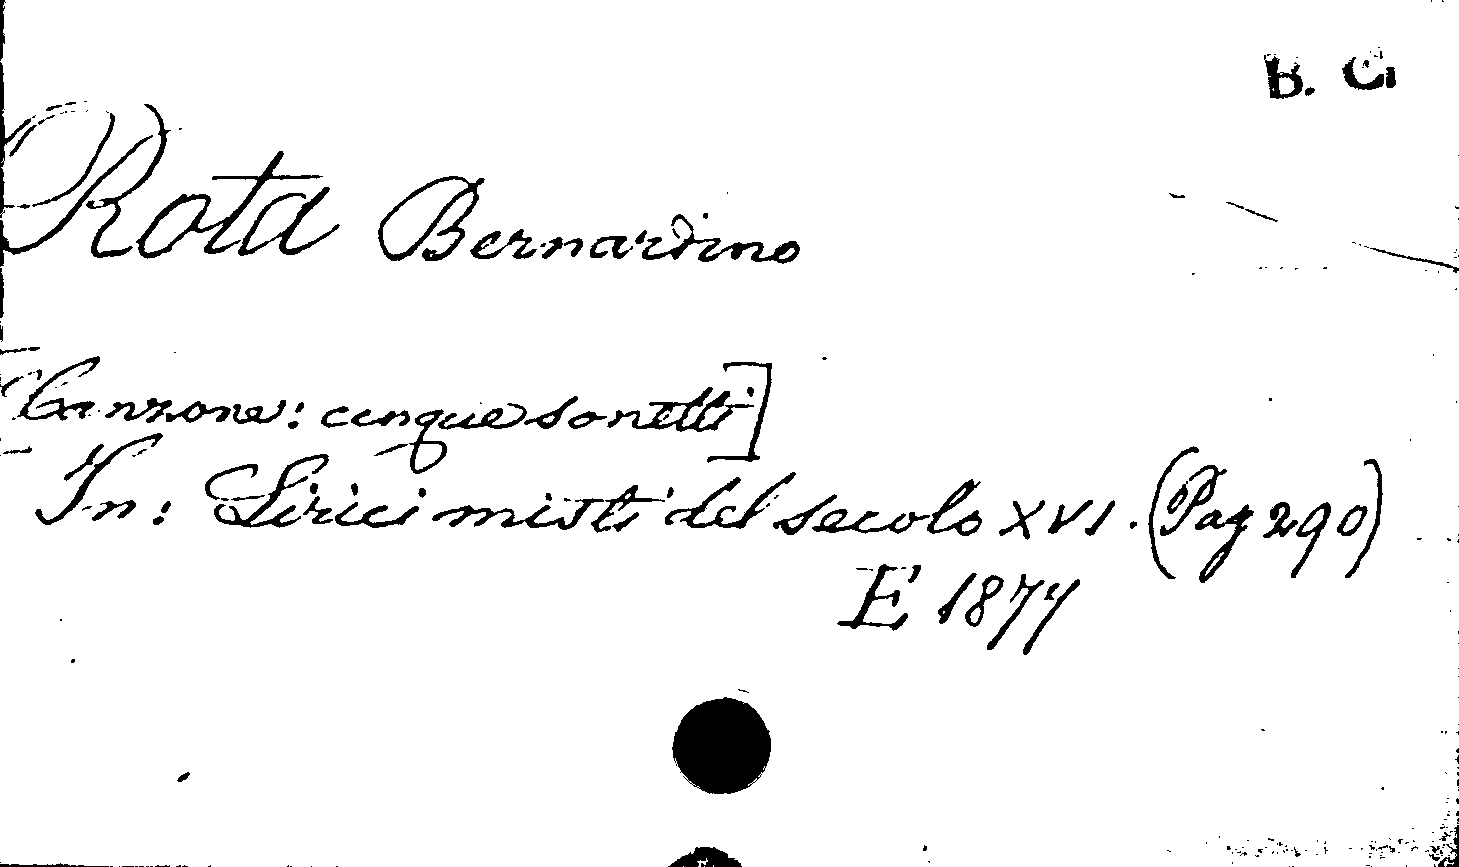 B. C.
Rota Bernardino
[Canzone: cinque sonetti]
In: Lirici misti del secolo XVI. (Pag 290)
E 1877